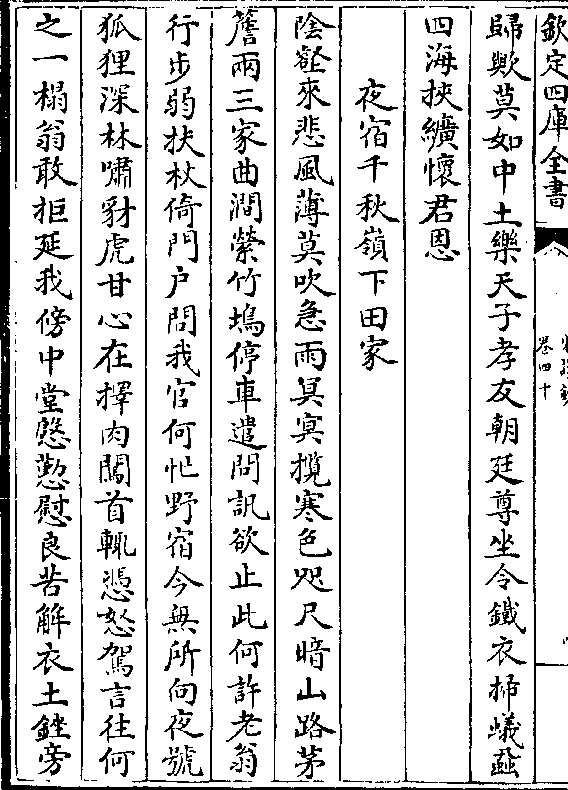 欽定四庫全書
卷四十
歸歟莫如中土樂天子孝友朝廷尊坐令鐵衣掃蟻蝨
四海挾纊懷君恩
夜宿千秋嶺下田家
陰壑來悲風薄莫吹急雨冥冥攬寒色咫尺暗山路茅
簷兩三家曲澗縈竹塢停車遣問訊欲止此何許老翁
行步弱扶杖倚門户問我官何忙野宿今無所向夜號
狐狸深林嘯豺虎甘心在擇肉闖首輒憑怒駕言往何
之一榻翁敢拒延我傍中堂慇懃慰良苦解衣土銼旁